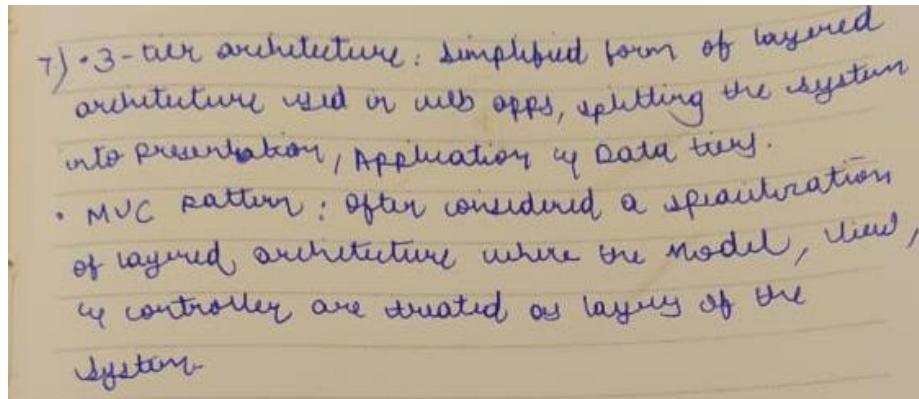 7) • 3-tier architecture : Simplified form of layered
architecture used in web apps, splitting the system
into Presentation, Application & Data tiers.
• MVC Pattern : Often considered a specialization
of layered architecture where the Model, View,
& controller are treated as layers of the
system.